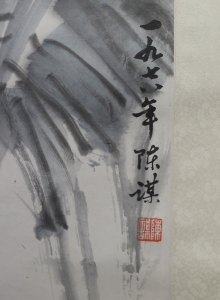 一九七八年陈谋